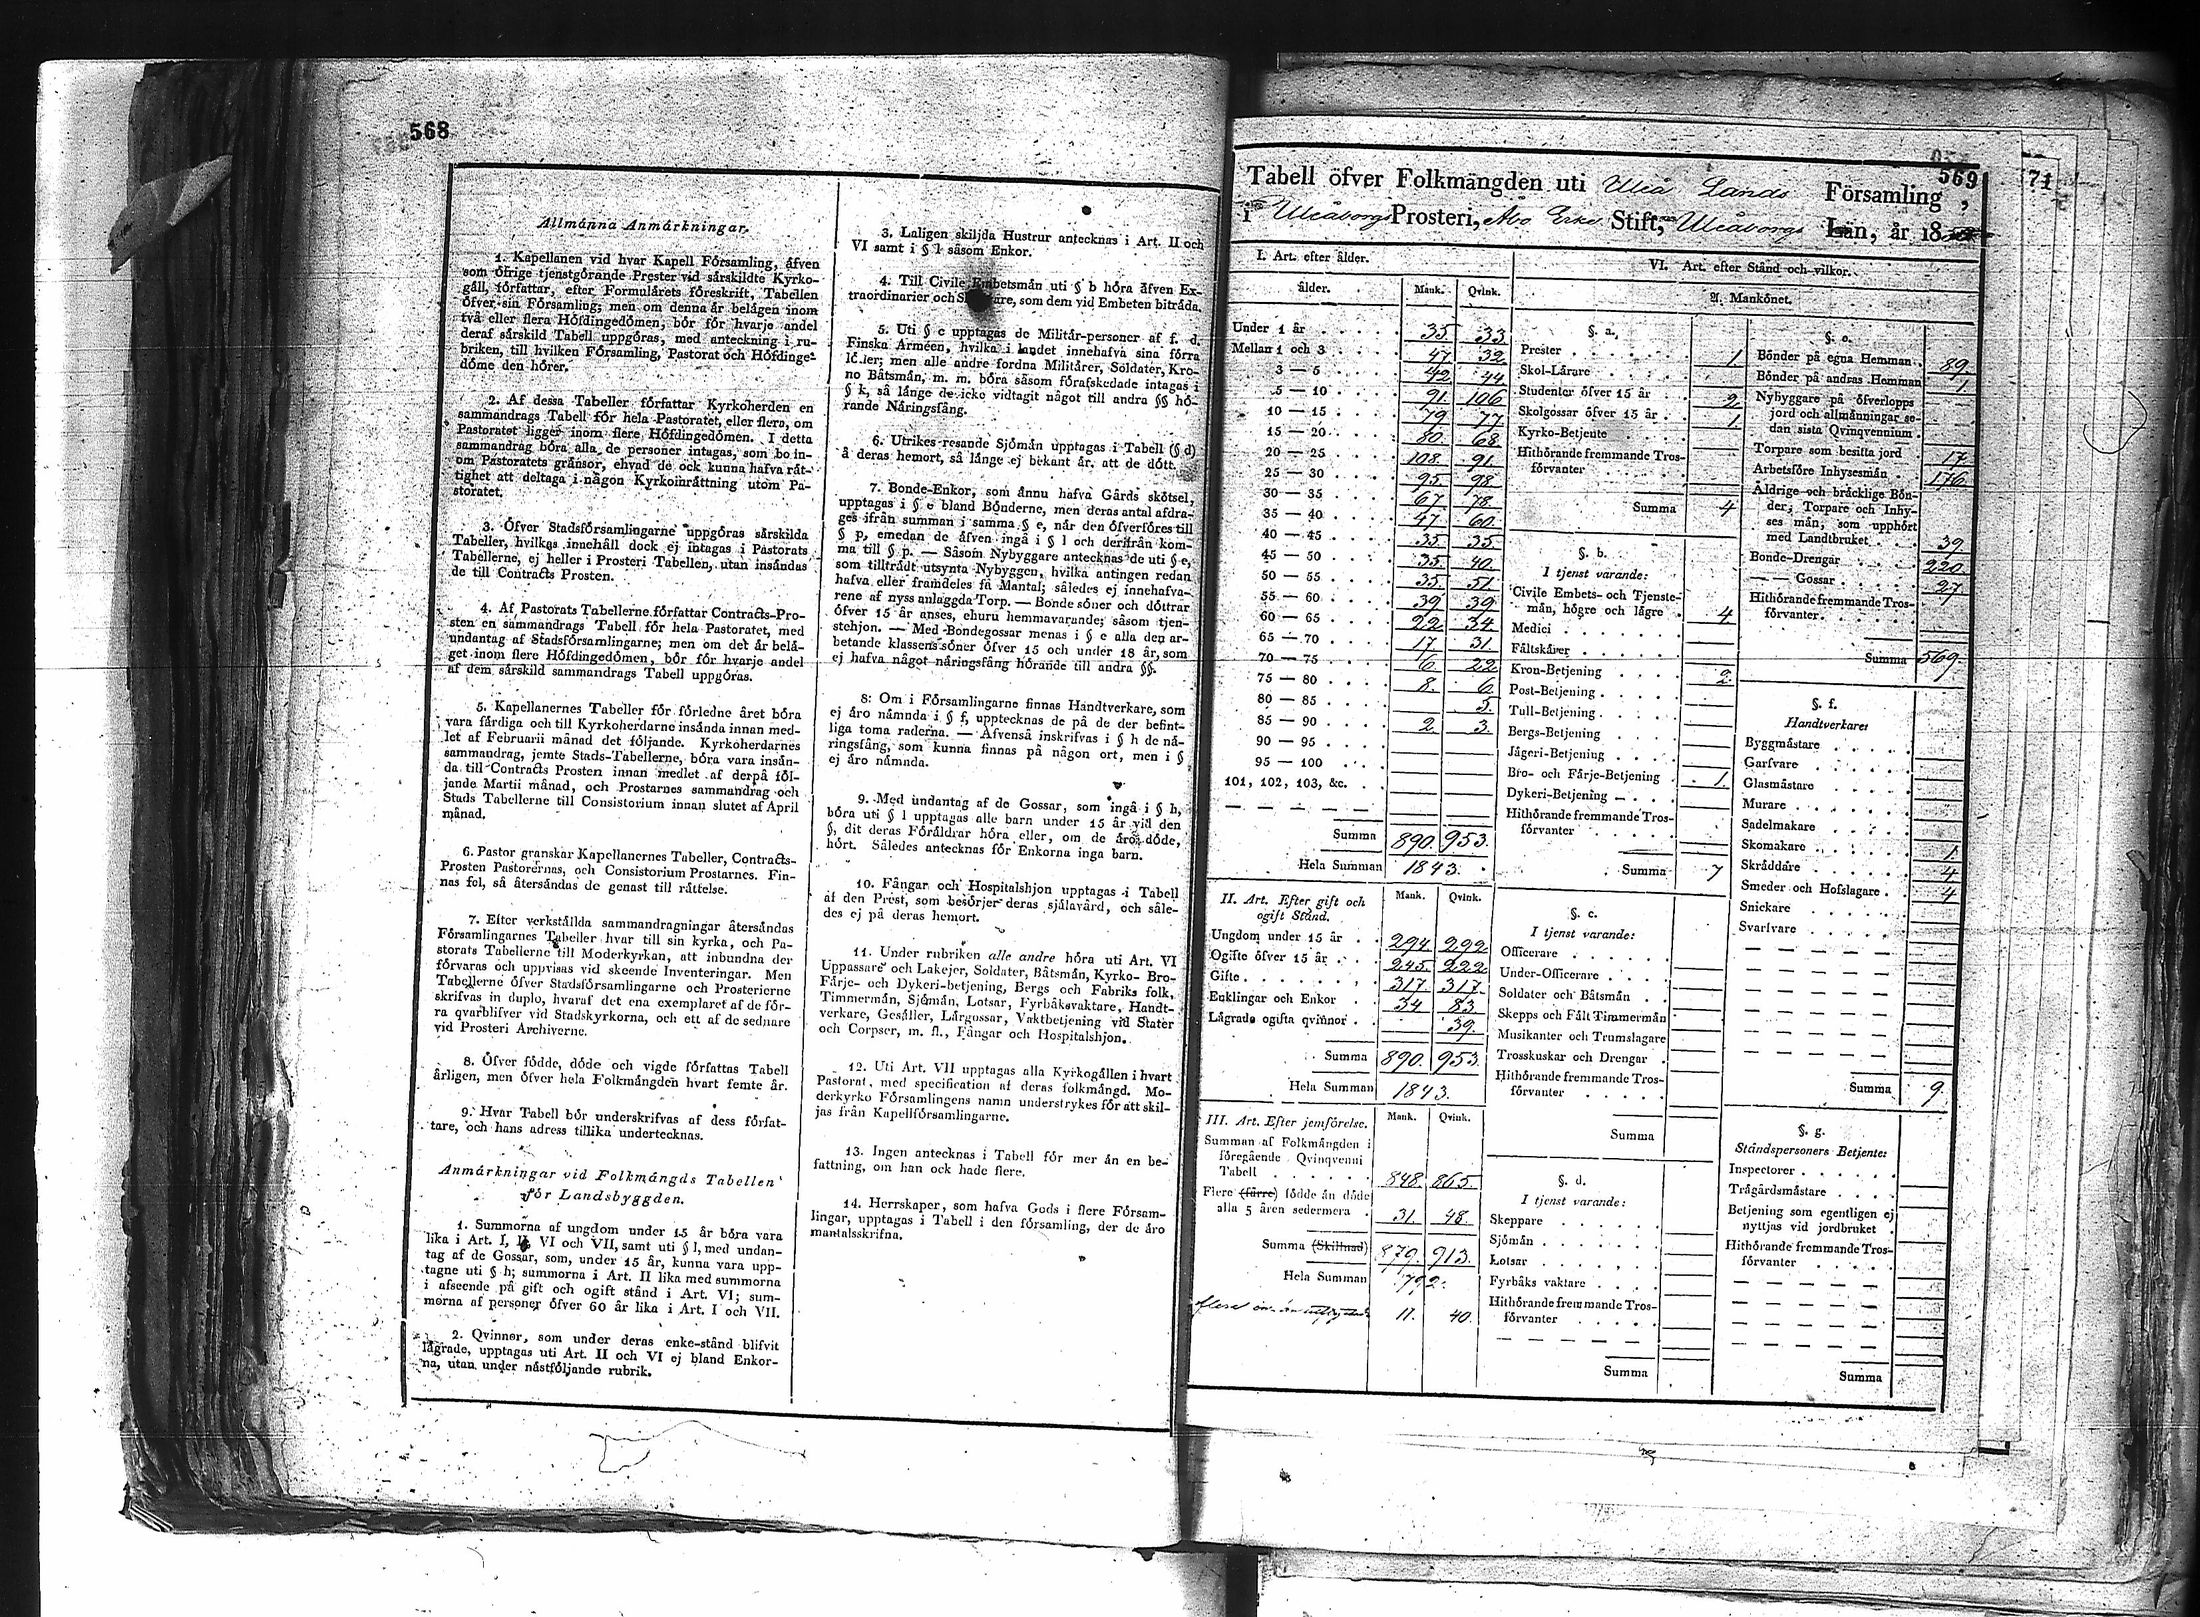 568
Allmänna Anmärkningar.
1. Kapellanen vid hvar Kapell Församling, äfven
som öfrige tjenstgörande Prester vid särskildte Kyrko-
gäll, författar, efter Formulärets föreskrift, Tabellen
öfver sin Församling; men om denna är belägen inom
två eller flera Höfdingedömen, bör för hvarje andel
deraf särskild Tabell uppgöras, med anteckning i ru-
briken, till hvilken Församling, Pastorat och Höfdinge-
döme den hörer.
2. Af dessa Tabeller författar Kyrkoherden en
sammandrags Tabell för hela Pastoratet, eller flera, om
Pastoratet ligger inom flere Höfdingedömen. I detta
sammandrag böra alla de personer intagas, som bo in-
om Pastoratets gränsor, ehvad de ock kunna hafva rät-
tighet att deltaga i någon Kyrkoinrättning utom Pa-
storatet.
3. Öfver Stadsförsamlingarne uppgöras särskilda
Tabeller, hvilkas innehåll dock ej intagas i Pastorats
Tabellerne, ej heller i Prosteri Tabellen, utan insändas
de till Contracts Prosten.
4. Af Pastorats Tabellerne författar Contracts-Pro-
sten en sammandrags Tabell för hela Pastoratet, med
undantag af Stadsförsamlingarne; men om det är belä-
get inom flere Höfdingedömen, bör för hvarje andel
af dem särskild sammandrags Tabell uppgöras.
5. Kapellanernes Tabeller för förledne året böra
vara färdiga och till Kyrkoherdarne insända innan med-
let af Februarii månad det följande. Kyrkoherdarnes
sammandrag, jemte Stads-Tabellerne, böra vara insän-
da till Contracts Prosten innan medlet af derpå föl-
jande Martii månad, och Prostarnes sammandrag och
Stads Tabellerne till Consistorium innan slutet af April
månad.
6. Pastor granskar Kapellanernes Tabeller, Contracts-
Prosten Pastorernas, och Consistorium Prostarnes. Fin-
nas fel, så återsändas de genast till rättelse.
7. Efter verkställda sammandragningar återsändas
Församlingarnes Tabeller hvar till sin kyrka, och Pa-
storats Tabellerne till Moderkyrkan, att inbundna der
förvaras och uppvisas vid skeende Inventeringar. Men
Tabellerne öfver Stadsförsamlingarne och Prosterierne
skrifvas in duplo, hvaraf det ena exemplaret af de för-
ra qvarblifver vid Stadskyrkorna, och ett af de sednare
vid Prosteri Archiverne.
8. Öfver födde, döde och vigde författas Tabell
årligen, men öfver hela Folkmängden hvart femte år.
9. Hvar Tabell bör underskrifvas af dess författ-
tare, och hans adress tillika undertecknas.
Anmärkningar vid Folkmängds Tabellen
för Landsbyggden.
1. Summorna af ungdom under 15 år böra vara
lika i Art. I, II, VI och VII, samt uti § l, med undan-
tag af de Gossar, som, under 15 år, kunna vara upp-
tagne uti § h; summorna i Art. II lika med summorna
i afseende på gift och ogift stånd i Art. VI; sum-
morna af personer öfver 60 år lika i Art. I och VII.
2. Qvinnor, som under deras enke-stånd blifvit
lägrade, upptagas uti Art. II och VI ej bland Enkor-
na, utan under nästföljande rubrik.
3. Laligen skiljda Hustrur antecknas i Art. II och
VI samt i § l såsom Enkor.
4. Till Civile Embetsmän uti § b höra äfven Ex-
traordinarier och Skrifvare, som dem vid Embeten biträda.
5. Uti § c upptagas de Militär-personer af f. d.
Finska Arméen, hvilka i landet innehafva sina förra
löner; men alle andre fordna Militärer, Soldater, Kro-
no Båtsmän, m. m. böra såsom förafskedade intagas i
§ k, så länge de icke vidtagit något till andra §§ hö-
rande Näringsfång.
6. Utrikes resande Sjömän upptagas i Tabell (§ d)
å deras hemort, så länge ej bekant är, att de dött.
7. Bonde-Enkor, som ännu hafva Gårds skötsel,
upptagas i § e bland Bönderne, men deras antal afdra-
ges ifrån summan i samma § e, när den öfverföres till
§ p, emedan de äfven ingå i § l och derifrån kom-
ma till § p. — Såsom Nybyggare antecknas de uti § e,
som tillträdt utsynta Nybyggen, hvilka antingen redan
hafva eller framdeles få Mantal; således ej innehafva-
rene af nyss anlagda Torp. — Bonde söner och döttrar
öfver 15 år anses, ehuru hemmavarande, såsom tjen-
stehjon. — Med Bondegossar menas i § e alla den ar-
betande klassens söner öfver 15 och under 18 år, som
ej hafva något näringsfång hörande till andra §§.
8: Om i Församlingarne finnas Handtverkare, som
ej äro nämnda i § f, upptecknas de på de der befint-
liga toma raderna. — Äfvenså inskrifvas i § h de nä-
ringsfång, som kunna finnas på någon ort, men i §
ej äro nämnda.
9. Med undantag af de Gossar, som ingå i § h,
böra uti § l upptagas alle barn under 15 år vid den
§, dit deras Föräldrar höra eller, om de äro döde,
hört. Således antecknas för Enkorna inga barn.
10. Fångar och Hospitalshjon upptagas i Tabell
af den Prest, som besörjer deras själavård, och såle-
des ej på deras hemort.
11. Under rubriken alle andre höra uti Art. VI
Uppassare och Lakejer, Soldater, Båtsmän, Kyrko- Bro-
Färje- och Dykeri-betjening, Bergs och Fabriks folk,
Timmermän, Sjömän, Lotsar, Fyrbåksvaktare, Handt-
verkare, Gesäller, Lärgossar, Vaktbetjening vid Stater
och Corpser, m. fl., Fångar och Hospitalshjon.
12. Uti Art. VII upptagas alla Kyrkogällen i hvart
Pastorat, med specification af deras folkmängd. Mo-
derkyrko Församlingens namn understrykes för att skil-
jas från Kapellförsamlingarne.
13. Ingen antecknas i Tabell för mer än en be-
fattning, om han ock hade flere.
14. Herrskaper, som hafva Gods i flere Försam-
lingar, upptagas i Tabell i den församling, der de äro
mantalsskrifna.
569
71
Tabell öfver Folkmängden uti Uleå Lands Församling,
i Uleåborgs Prosteri, Åbo Erke Stift, Uleåborgs Län, år 18
I. Art. efter ålder.
ålder. Mank. Qvink.
Under 1 år 35. 33.
Mellan 1 och 3 47. 32.
3 — 5 42. 44.
5 — 10 91. 106
10 — 15 79 77
15 — 20 80. 68
20 — 25 108. 91.
25 — 30 95. 98
30 — 35 67. 78.
35 — 40 47. 60.
40 — 45 35. 35.
45 — 50 35. 40.
50 — 55 35. 51.
55 — 60 39 39
60 — 65 22. 34
65 — 70 17. 31.
70 — 75 6 22
75 — 80 8. 6.
80 — 85 5.
85 — 90 2 3.
90 — 95
95 — 100
101, 102, 103, &c.
Summa 890. 953.
Hela Summan 1843.
II. Art. Efter gift och
ogift Stånd. Mank. Qvink.
Ungdom under 15 år 294. 292
Ogifte öfver 15 år 245. 222
Gifte 317. 317.
Enklingar och Enkor 34 83.
Lägrade ogifta qvinnor 39.
Summa 890. 953.
Hela Summan 1843.
III. Art. Efter jemförelse. Mank. Qvink.
Summan af Folkmängden i
föregående Qvinqvenni
Tabell 848. 865.
Flere (färre) födde än döde
alla 5 åren sedermera 31. 48.
Summa (Skillnad) 879. 913.
Hela Summan 792.
flere in än utflyttade 11. 40.
VI. Art. efter Stånd och vilkor.
A. Mankönet.
§. a.
Prester 1.
Skol-Lärare
Studenter öfver 15 år 2
Skolgossar öfver 15 år 1.
Kyrko-Betjente
Hithörande fremmande Tros-
förvanter
Summa 4
§. b.
I tjenst varande:
Civile Embets- och Tjenste-
män, högre och lägre 4
Medici
Fältskärer
Kron-Betjening 2.
Post-Betjening
Tull-Betjening
Bergs-Betjening
Jägeri-Betjening
Bro- och Färje-Betjening 1.
Dykeri-Betjening
Hithörande fremmande Tros-
förvanter
Summa 7
§. c.
I tjenst varande:
Officerare
Under-Officerare
Soldater och Båtsmän
Skepps och Fält Timmermän
Musikanter och Trumslagare
Trosskuskar och Drengar
Hithörande fremmande Tros-
förvanter
Summa
§. d.
I tjenst varande:
Skeppare
Sjömän
Lotsar
Fyrbåks vaktare
Hithörande fremmande Tros-
förvanter
Summa
§. e.
Bönder på egna Hemman 89.
Bönder på andras Hemman 1.
Nybyggare på öfverlopps
jord och allmänningar se-
dan sista Qvinqvennium
Torpare som besitta jord 17.
Arbetsföre Inhysesmän 176
Åldrige och bräcklige Bön-
der, Torpare och Inhy-
ses män, som upphört
med Landtbruket 39
Bonde-Drengar 220.
— — Gossar 27.
Hithörande fremmande Tros-
förvanter
Summa 569.
§. f.
Handtverkare:
Byggmästare
Garfvare
Glasmästare
Murare
Sadelmakare
Skomakare 1.
Skräddare 4
Smeder och Hofslagare 4
Snickare
Svarfvare
Summa 9.
§. g.
Ståndspersoners Betjente:
Inspectorer
Trägårdsmästare
Betjening som egentligen ej
nyttjas vid jordbruket
Hithörande fremmande Tros-
förvanter
Summa